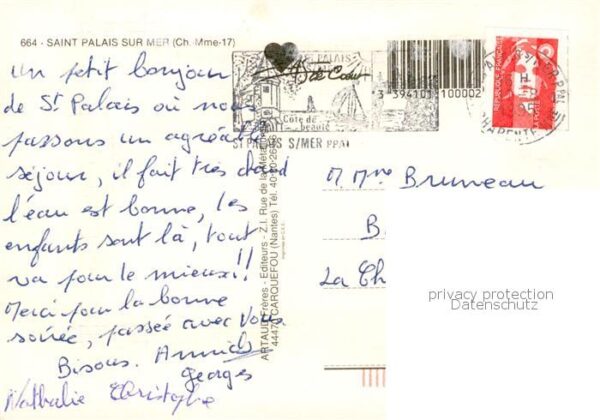 664 - SAINT PALAIS SUR MER (Ch.-Mme-17)
Un petit bonjour
de St Palais où nous
passons un agréable
séjour, il fait très chaud
l'eau est bonne, les
enfants sont là, tout
va pour le mieux!!
Merci pour la bonne
soirée, passée avec vous.
Bisous. Annick
Georges
Nathalie Christophe
ARTAUD Frères - Editeurs - Z.I. Rue de la Métallurgie
44470 CARQUEFOU (Nantes) Tél. 40
ST PALAIS S/MER PPAL
Côte de
beauté
3 394101 100002
RÉPUBLIQUE FRANÇAISE
LA POSTE
M. Mme Bruneau
B
La Ch
privacy protection
Datenschutz